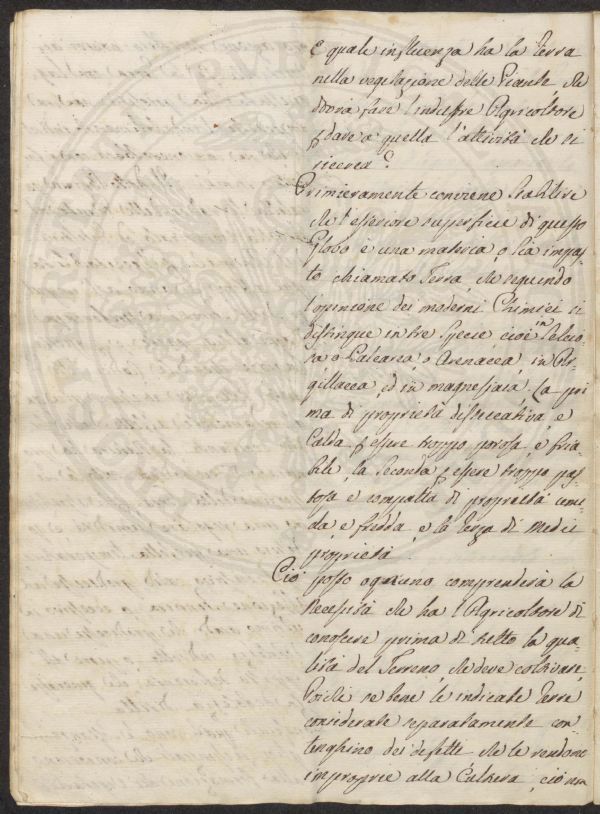 e quale influenza ha la terra
nella vegetazione delle Piante, che
dovrà fare l'industre Agricoltore
p dare a quella l'attività che si
ricerca?
Primieramente conviene stabilire
che l'esteriore superficie di questo
Globo è una materia, o sia impas-
to chiamato Terra, che seguendo
l'opinione dei moderni Chimici si
distingue in tre specie cioè in Selcio-
sa o Calcarea, o Arenacea, in Ar-
gillacea, ed in magnesiaca. La pri
ma di proprietà disseccativa, e
Calda p essere troppo porosa, e fria-
bile, la seconda p essere troppo pas-
tosa e compatta di proprietà umi-
da, e fredda, e la terza di medie
proprietà.
Ciò posto ognuno comprenderà la
Necessità che ha l'Agricoltore di
conoscere prima di tutto la qua
lità del Terreno, che deve coltivare,
Poichè se bene le indicate terre
considerate separatamente con-
tenghino dei difetti che le rendono
improprie alla Cultura, ciò non